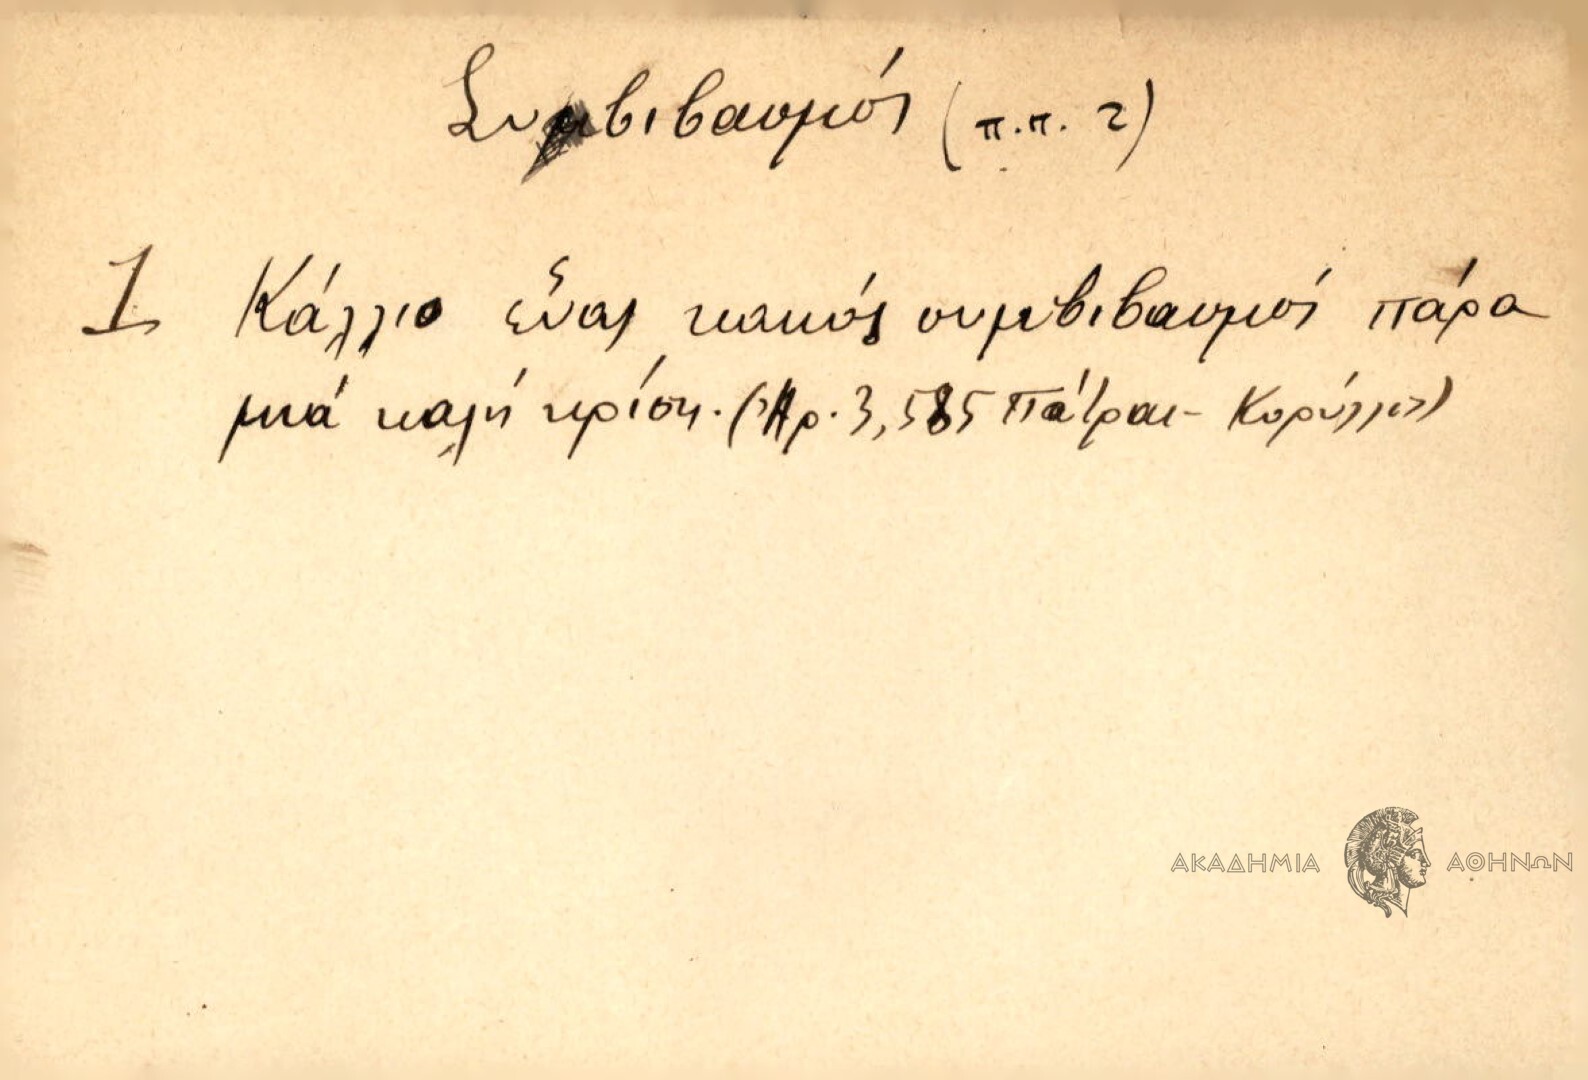 Συμβιβασμός (π.π. 2)
1 Κάλλιο ἕνας κακός συμβιβασμός πάρα
μιά καλή κρίση. (Ἀρ. 3,585 Πάτραι - Κορύλλος)
ΑΚΑΔΗΜΙΑ ΑΘΗΝΩΝ